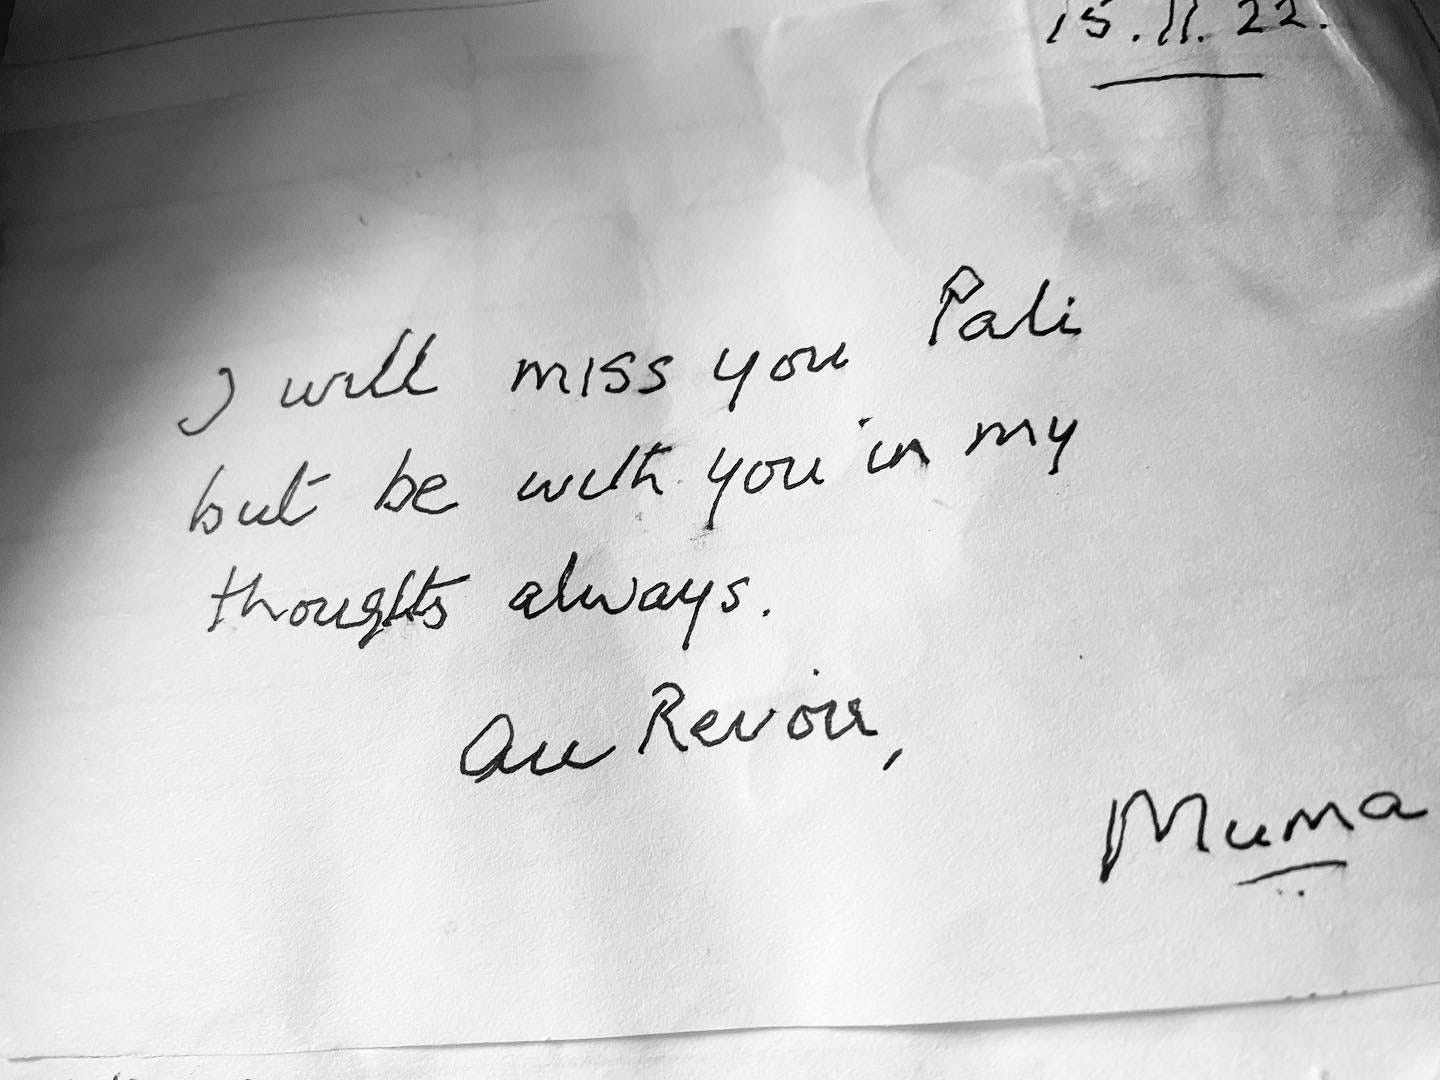 15.11.22.
I will miss you Pali
but be with you in my
thoughts always.
Au Revoir,
Muma